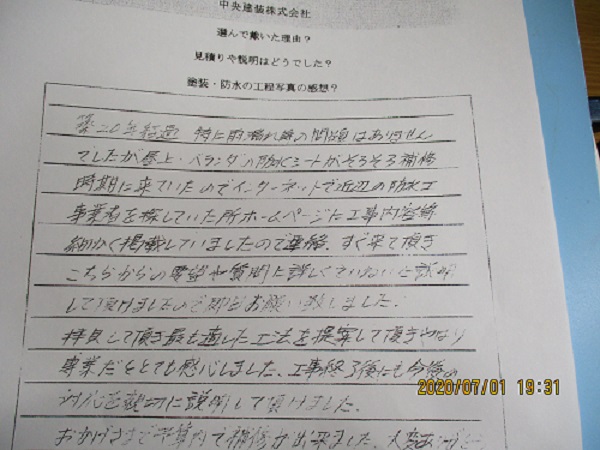 中央建装株式会社
選んで戴いた理由?
見積りや説明はどうでした?
塗装・防水の工程写真の感想?
築20年経過 特に雨漏れ等の問題はありません
でしたが屋上・ベランダの防水シートがそろそろ補修
時期に来ていたのでインターネットで近辺の防水工
事業者を探していた所ホームページに工事内容等
細かく掲載していましたので連絡、すぐ来て頂き
こちらからの要望や質問に詳しくていねいに説明
して頂けましたので即お願い致しました。
拝見して頂き最も適した工法を提案して頂きやはり
専業だなととても感心しました、工事終了後にも今後の
対応を親切に説明して頂けました。
おかげさまで予算内で補修が出来ました、大変
2020/07/01 19:31